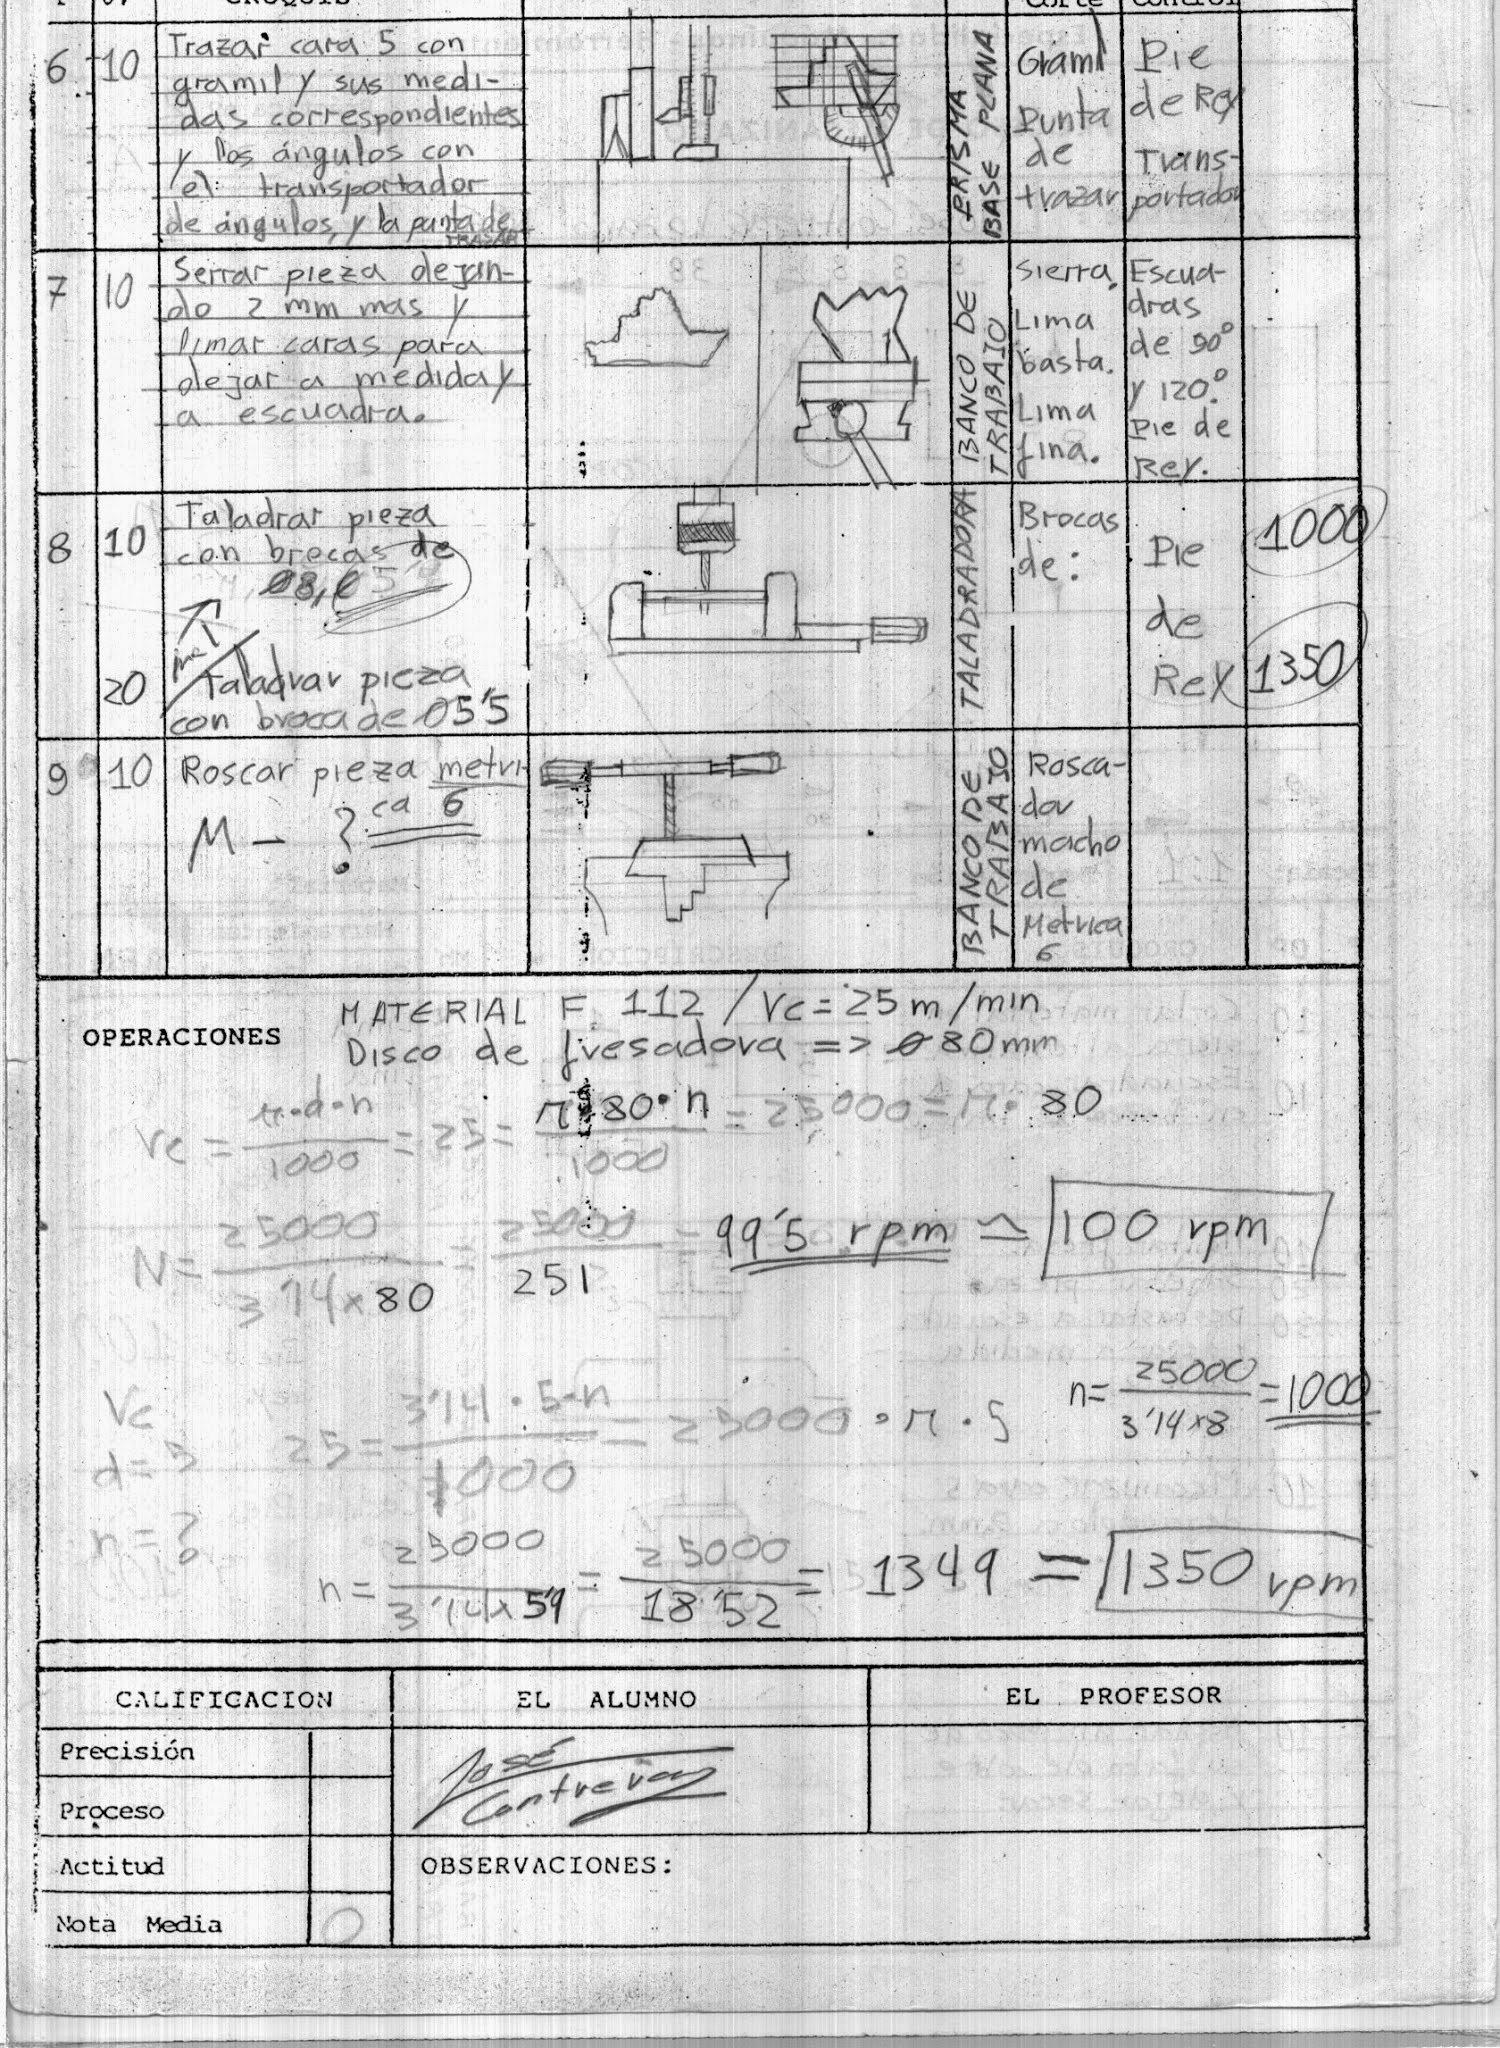 CROQUIS
Corte Control
6 10 Trazar cara 5 con
gramil y sus medi-
das correspondientes
y los ángulos con
el transportador
de ángulos, y la punta de
TRASAR
PRISMA
BASE PLANA
Gramil
Punta
de
trazar
Pie
de Rey
Trans-
portador
7 10 Serrar pieza dejan-
do 2 mm mas y
limar caras para
dejar a medida y
a escuadra.
BANCO DE
TRABAJO
Sierra.
Lima
basta.
Lima
fina.
Escua-
dras
de 90°
y 120°.
Pie de
Rey.
8 10 Taladrar pieza
con brocas de
20 Taladrar pieza
con broca de Ø5'5
TALADRADORA
Brocas
de:
Pie
de
Rey
1000
1350
9 10 Roscar pieza metri-
ca 6
M - ?
BANCO DE
TRABAJO
Rosca-
dor
macho
de
Metrica
6
OPERACIONES
MATERIAL F. 112 / Vc = 25 m/min
Disco de fresadora => Ø 80 mm
Vc = π·d·n / 1000 = 25 = π·80·n / 1000 = 25,000 = π· 80
N = 25000 / 3'14 x 80 = 25000 / 251 = 99'5 rpm ≃ 100 rpm
n = 25000 / 3'14 x 8 = 1000
Vc
d = 5
n = ?
25 = 3'14 · 5 · n / 1000 = 25000 · π · 5
n = 25000 / 3'14 x 5'9 = 25000 / 18'52 = 1349 = 1350 rpm
CALIFICACION
EL ALUMNO
EL PROFESOR
Precisión
José
Contreras
Proceso
Actitud
OBSERVACIONES:
Nota Media 0